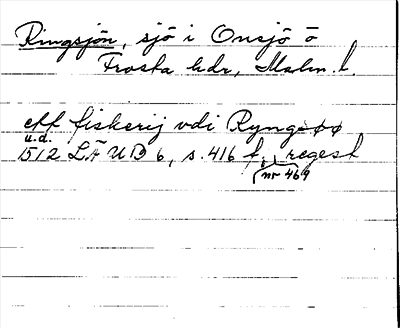 Ringsjön, sjö i Onsjö o
Frosta hdr, Malm. l.
ett fiskerij vdi Ryngsøø
u.d.
1512 LÄUB 6, s. 416 f, regest
nr 469